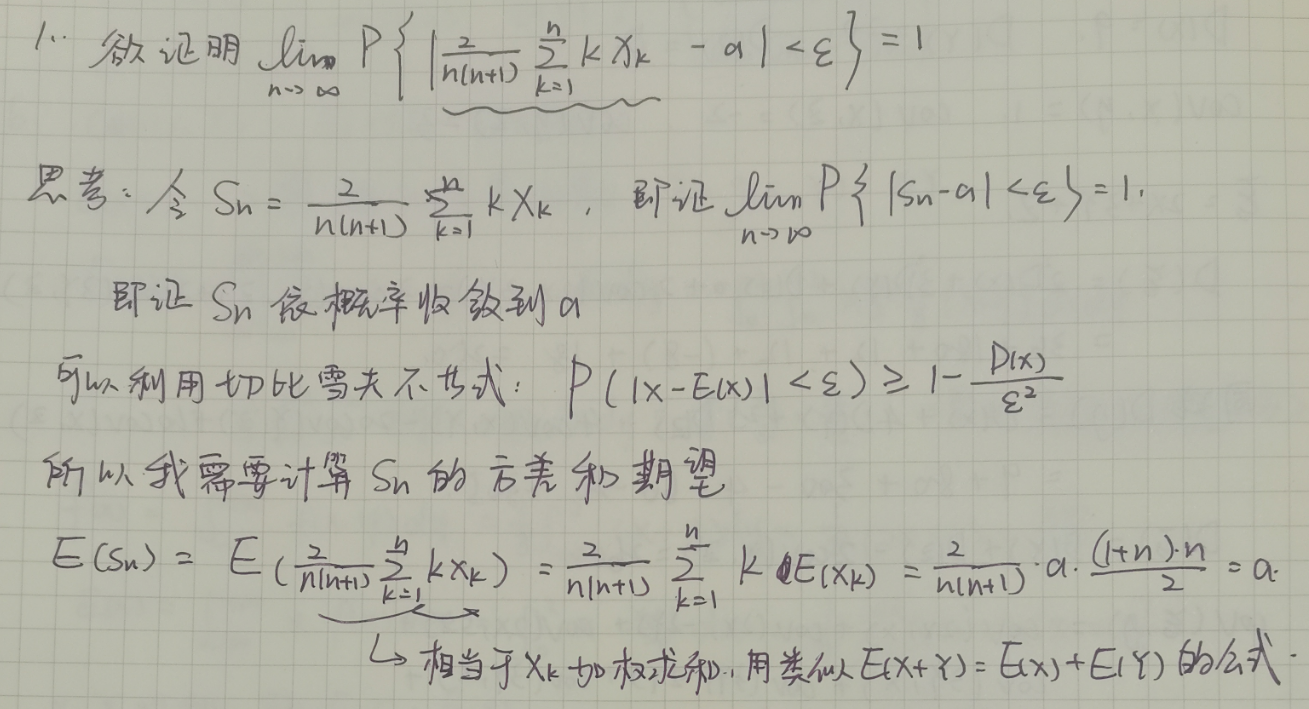 1. 欲证明 lim n→∞ P{|2/n(n+1) ∑k=1n k Xk - a| < ε} = 1
思考：令 Sn = 2/n(n+1) ∑k=1n k Xk , 即证 lim n→∞ P{|Sn-a| < ε} = 1.
即证 Sn 依概率收敛到 a
可以利用切比雪夫不等式: P(|X-E(X)| < ε) ≥ 1 - D(X)/ε²
所以我需要计算 Sn 的方差和期望
E(Sn) = E(2/n(n+1) ∑k=1n k Xk) = 2/n(n+1) ∑k=1n k E(Xk) = 2/n(n+1) · a · (1+n)·n/2 = a.
↳ 相当于 Xk 加权求和, 用类似 E(X+Y) = E(X) + E(Y) 的公式.